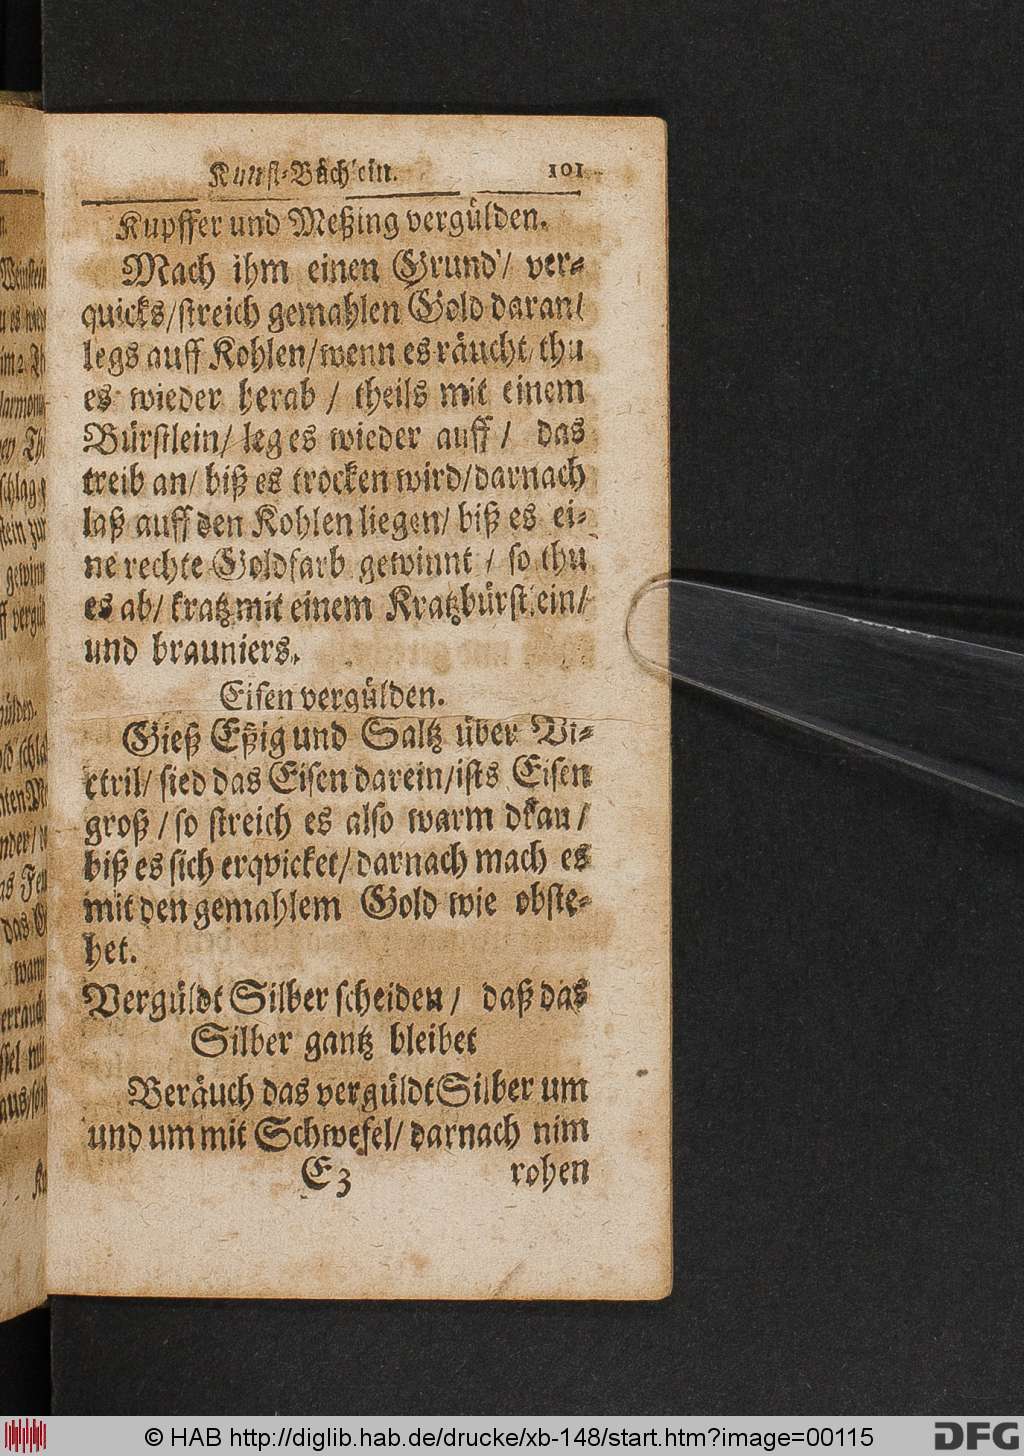 Kunst-Büchlein. 101
Kupffer und Meßing vergülden.
Mach ihm einen Grund / ver-
quicks / streich gemahlen Gold daran /
legs auff Kohlen / wenn es räucht / thu
es wieder herab / theils mit einem
Bürstlein / leg es wieder auff / das
treib an / biß es trocken wird / darnach
laß auff den Kohlen liegen / biß es ei-
ne rechte Goldfarb gewinnt / so thu
es ab / kratz mit einem Kratzbürstlein /
und brauniers.
Eisen vergülden.
Gieß Eßig und Saltz über Vi-
ctril / sied das Eisen darein / ists Eisen
groß / so streich es also warm dkau /
biß es sich erqvicket / darnach mach es
mit den gemahlem Gold wie obste-
het.
Vergüldt Silber scheiden / daß das
Silber gantz bleibet
Beräuch das vergüldt Silber um
und um mit Schwefel / darnach nim
E3 rohen
© HAB http://diglib.hab.de/drucke/xb-148/start.htm?image=00115
DFG